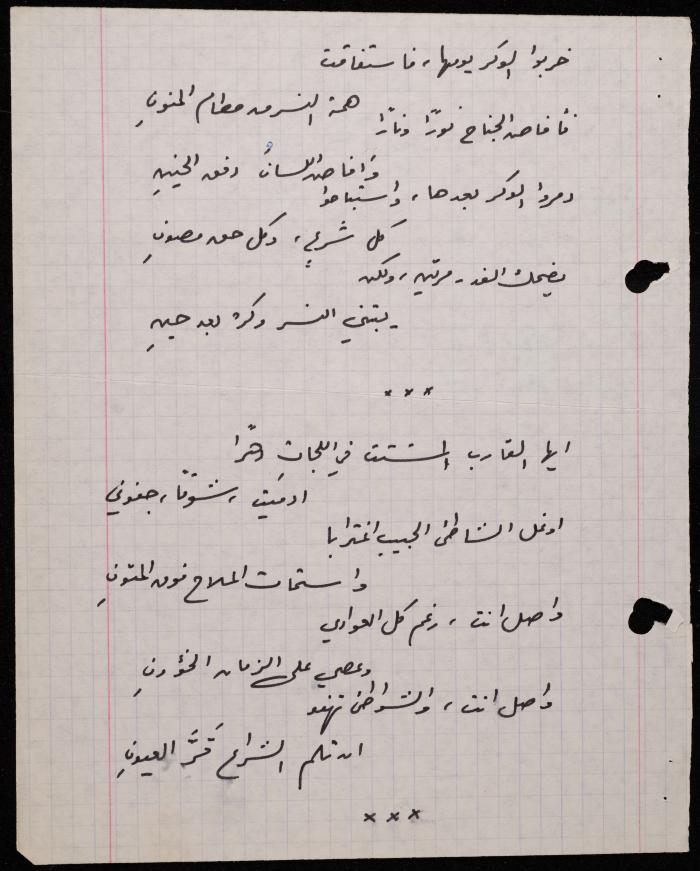 خربوا الوكر يومها، فاستفاقت
همة النسر من حطام المنونِ
فأفاض الجناح نورًا ونارًا
وأفاض اللسانُ دفق الحنينِ
دمروا الوكر بعدها، واستباحوا
كل شرعٍ، وكل حق مصونِ
يضحك الغدر مرتين، ولكن
يبتني النسر وكرهُ بعد حينِ
* * *
ايها القارب المشتت في اللجاتِ دهرًا
ادميت، شوقًا، جفوني
اوغل الشاطئ الحبيب اغترابا
واستمات الملاح فوق المتونِ
واصل انت، رغم كل العوادي
وعصي على الزمان الخؤونِ
واصل انت، والشواطئ تهفو
ان تلم الشراع قَرَّ العيونِ
* * *